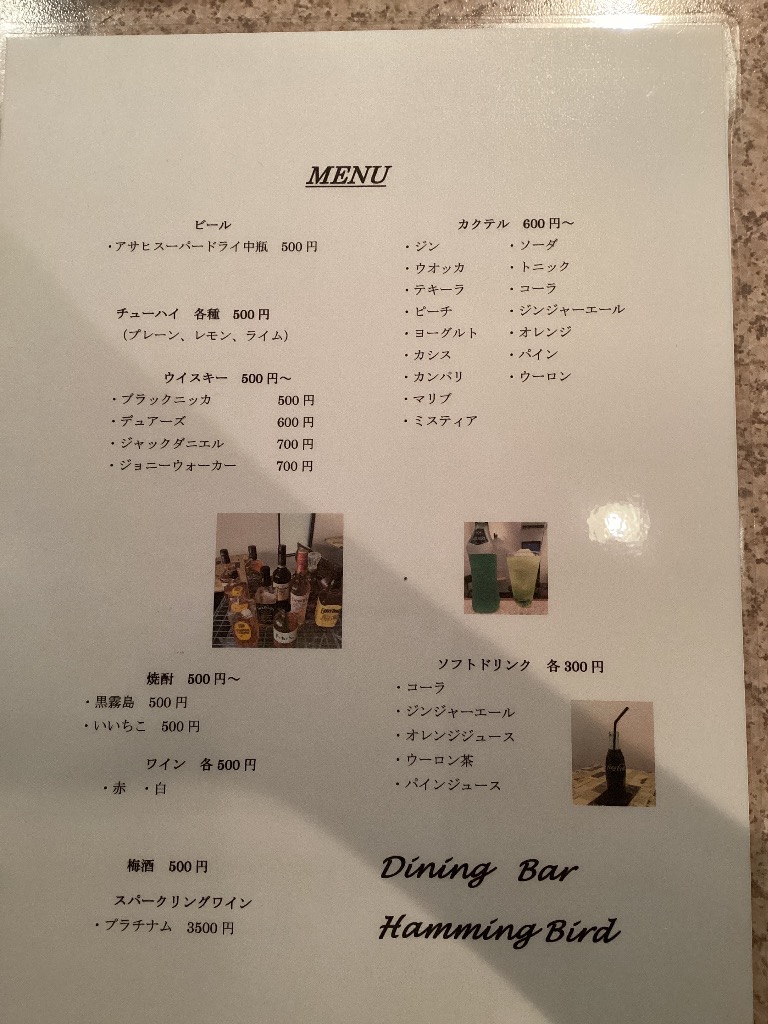 MENU
ビール
・アサヒスーパードライ中瓶　500円
チューハイ　各種　500円
（プレーン、レモン、ライム）
ウイスキー　500円～
・ブラックニッカ　500円
・デュアーズ　600円
・ジャックダニエル　700円
・ジョニーウォーカー　700円
カクテル　600円～
・ジン　・ソーダ
・ウオッカ　・トニック
・テキーラ　・コーラ
・ピーチ　・ジンジャーエール
・ヨーグルト　・オレンジ
・カシス　・パイン
・カンパリ　・ウーロン
・マリブ
・ミスティア
焼酎　500円～
・黒霧島　500円
・いいちこ　500円
ワイン　各500円
・赤　・白
梅酒　500円
スパークリングワイン
・プラチナム　3500円
ソフトドリンク　各300円
・コーラ
・ジンジャーエール
・オレンジジュース
・ウーロン茶
・パインジュース
Dining Bar
Hamming Bird